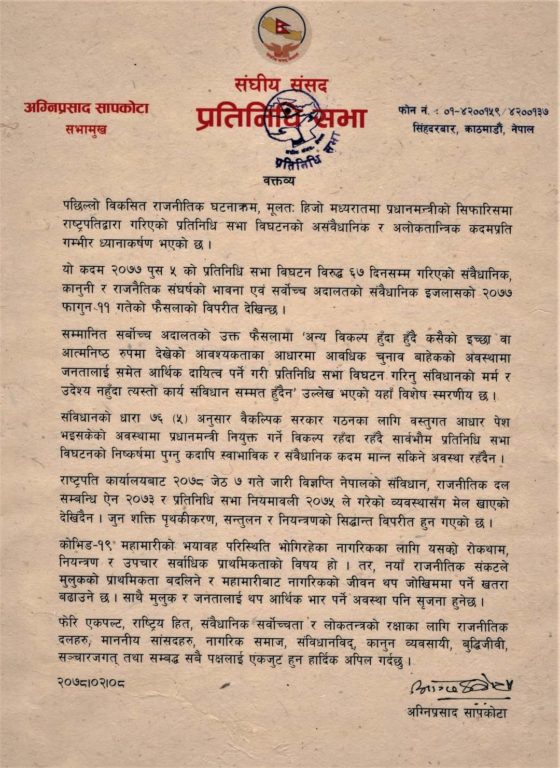 संघीय संसद
प्रतिनिधि सभा
अग्निप्रसाद सापकोटा
सभामुख
फोन नं. : ०१-४२००१५९/४२००१३७
सिंहदरबार, काठमाडौं, नेपाल
प्रतिनिधि सभा
वक्तव्य
पछिल्लो विकसित राजनीतिक घटनाक्रम, मूलतः हिजो मध्यरातमा प्रधानमन्त्रीको सिफारिसमा
राष्ट्रपतिद्वारा गरिएको प्रतिनिधि सभा विघटनको असंवैधानिक र अलोकतान्त्रिक कदमप्रति
गम्भीर ध्यानाकर्षण भएको छ।
यो कदम २०७७ पुस ५ को प्रतिनिधि सभा विघटन विरुद्ध ६७ दिनसम्म गरिएको संवैधानिक,
कानुनी र राजनैतिक संघर्षको भावना एवं सर्वोच्च अदालतको संवैधानिक इजलासको २०७७
फागुन-११ गतेको फैसलाको विपरीत देखिन्छ।
सम्मानित सर्वोच्च अदालतको उक्त फैसलामा 'अन्य विकल्प हुँदा हुँदै कसैको इच्छा वा
आत्मनिष्ठ रुपमा देखेको आवश्यकताका आधारमा आवधिक चुनाव बाहेकको अवस्थामा
जनतालाई समेत आर्थिक दायित्व पर्ने गरी प्रतिनिधि सभा विघटन गरिनु संविधानको मर्म र
उदेश्य नहुँदा त्यस्तो कार्य संविधान सम्मत हुँदैन' उल्लेख भएको यहाँ विशेष स्मरणीय छ।
संविधानको धारा ७६ (५) अनुसार वैकल्पिक सरकार गठनका लागि वस्तुगत आधार पेश
भइसकेको अवस्थामा प्रधानमन्त्री नियुक्त गर्ने विकल्प रहँदा रहँदै सार्वभौम प्रतिनिधि सभा
विघटनको निष्कर्षमा पुग्नु कदापि स्वाभाविक र संवैधानिक कदम मान्न सकिने अवस्था रहँदैन।
राष्ट्रपति कार्यालयबाट २०७८ जेठ ७ गते जारी विज्ञप्ति नेपालको संविधान, राजनीतिक दल
सम्बन्धि ऐन २०७३ र प्रतिनिधि सभा नियमावली २०७५ ले गरेको व्यवस्थासँग मेल खाएको
देखिदैन। जुन शक्ति पृथकीकरण, सन्तुलन र नियन्त्रणको सिद्धान्त विपरीत हुन गएको छ।
कोभिड-१९ महामारीको भयावह परिस्थिति भोगिरहेका नागरिकका लागि यसको रोकथाम,
नियन्त्रण र उपचार सर्वाधिक प्राथमिकताको विषय हो। तर, नयाँ राजनीतिक संकटले
मुलुकको प्राथमिकता बदलिने र महामारीबाट नागरिकको जीवन थप जोखिममा पर्ने खतरा
बढाउने छ। साथै मुलुक र जनतालाई थप आर्थिक भार पर्ने अवस्था पनि सृजना हुनेछ।
फेरि एकपल्ट, राष्ट्रिय हित, संवैधानिक सर्वोच्चता र लोकतन्त्रको रक्षाका लागि राजनीतिक
दलहरु, माननीय सांसदहरु, नागरिक समाज, संविधानविद्, कानुन व्यवसायी, बुद्धिजीवी,
सञ्चारजगत् तथा सम्बद्ध सबै पक्षलाई एकजुट हुन हार्दिक अपिल गर्दछु।
२०७८।०२।०८
अग्निप्रसाद सापकोटा